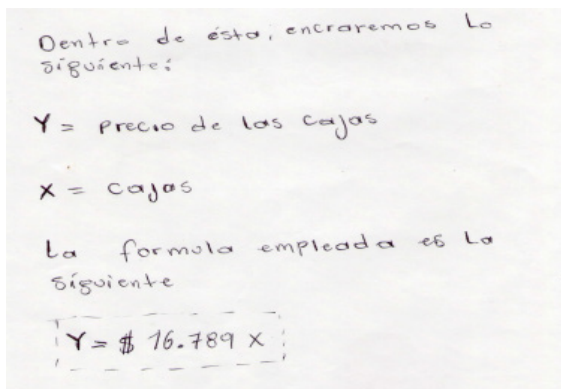 Dentro de ésta, encraremos lo
siguiente:
Y = precio de las cajas
X = cajas
La formula empleada es La
siguiente
Y = $ 16.789 X